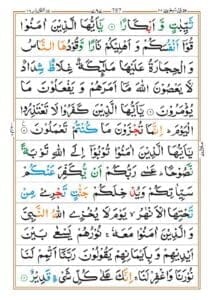 ثَيِّبٰتٍ وَّ اَبْكَارًا ۝ يٰۤاَيُّهَا الَّذِيْنَ اٰمَنُوْا
قُوْۤا اَنْفُسَكُمْ وَ اَهْلِيْكُمْ نَارًا وَّقُوْدُهَا النَّاسُ
وَ الْحِجَارَةُ عَلَيْهَا مَلٰٓئِكَةٌ غِلَاظٌ شِدَادٌ
لَّا يَعْصُوْنَ اللّٰهَ مَاۤ اَمَرَهُمْ وَ يَفْعَلُوْنَ مَا
يُؤْمَرُوْنَ ۝ يٰۤاَيُّهَا الَّذِيْنَ كَفَرُوْا لَا تَعْتَذِرُوا
الْيَوْمَ ؕ اِنَّمَا تُجْزَوْنَ مَا كُنْتُمْ تَعْمَلُوْنَ ۝
يٰۤاَيُّهَا الَّذِيْنَ اٰمَنُوْا تُوْبُوْۤا اِلَى اللّٰهِ تَوْبَةً
نَّصُوْحًا ؕ عَسٰى رَبُّكُمْ اَنْ يُّكَفِّرَ عَنْكُمْ
سَيِّاٰتِكُمْ وَ يُدْخِلَكُمْ جَنّٰتٍ تَجْرِيْ مِنْ
تَحْتِهَا الْاَنْهٰرُ ۙ يَوْمَ لَا يُخْزِي اللّٰهُ النَّبِيَّ
وَ الَّذِيْنَ اٰمَنُوْا مَعَهٗ ۚ نُوْرُهُمْ يَسْعٰى بَيْنَ
اَيْدِيْهِمْ وَ بِاَيْمَانِهِمْ يَقُوْلُوْنَ رَبَّنَاۤ اَتْمِمْ لَنَا
نُوْرَنَا وَ اغْفِرْ لَنَا ۚ اِنَّكَ عَلٰى كُلِّ شَيْءٍ قَدِيْرٌ ۝